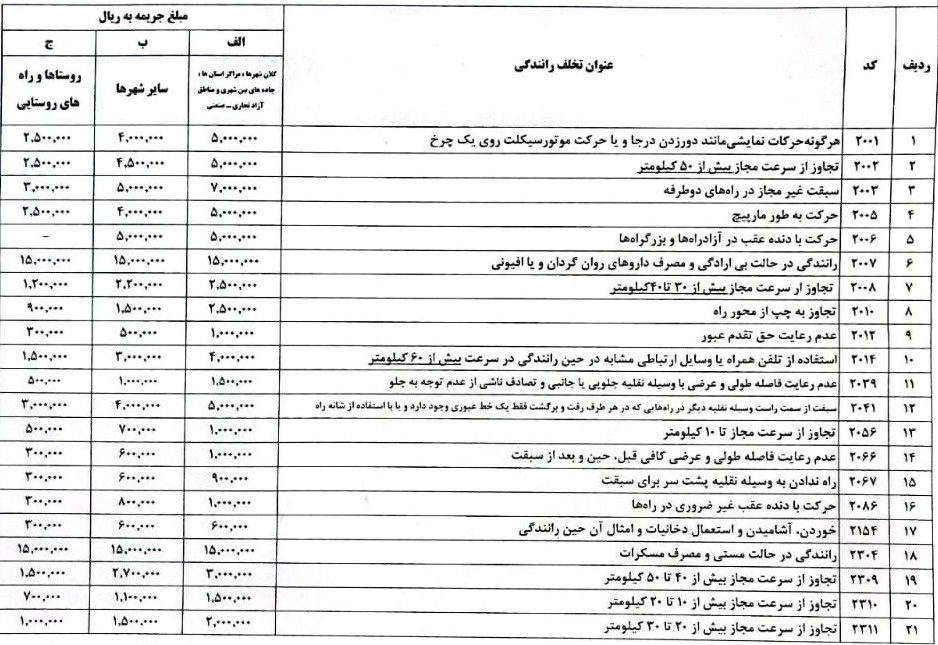 مبلغ جریمه به ریال
ردیف کد عنوان تخلف رانندگی الف ب ج
کلان شهرها، مراکز استان ها،
جاده های بین شهری و مناطق
آزاد تجاری – صنعتی
سایر شهرها
روستاها و راه
های روستایی
۱ ۲۰۰۱ هرگونه حرکات نمایشی مانند دورزدن درجا و یا حرکت موتورسیکلت روی یک چرخ ۵,۰۰۰,۰۰۰ ۴,۰۰۰,۰۰۰ ۲,۵۰۰,۰۰۰
۲ ۲۰۰۲ تجاوز از سرعت مجاز بیش از ۵۰ کیلومتر ۵,۰۰۰,۰۰۰ ۴,۵۰۰,۰۰۰ ۲,۵۰۰,۰۰۰
۳ ۲۰۰۳ سبقت غیر مجاز در راه‌های دوطرفه ۷,۰۰۰,۰۰۰ ۵,۰۰۰,۰۰۰ ۳,۰۰۰,۰۰۰
۴ ۲۰۰۵ حرکت به طور مارپیچ ۵,۰۰۰,۰۰۰ ۴,۰۰۰,۰۰۰ ۲,۵۰۰,۰۰۰
۵ ۲۰۰۶ حرکت با دنده عقب در آزادراه‌ها و بزرگراه‌ها ۵,۰۰۰,۰۰۰ ۵,۰۰۰,۰۰۰ –
۶ ۲۰۰۷ رانندگی در حالت بی ارادگی و مصرف داروهای روان گردان و یا افیونی ۱۵,۰۰۰,۰۰۰ ۱۵,۰۰۰,۰۰۰ ۱۵,۰۰۰,۰۰۰
۷ ۲۰۰۸ تجاوز ار سرعت مجاز بیش از ۳۰ تا۴۰کیلومتر ۲,۵۰۰,۰۰۰ ۲,۲۰۰,۰۰۰ ۱,۲۰۰,۰۰۰
۸ ۲۰۱۰ تجاوز به چپ از محور راه ۲,۵۰۰,۰۰۰ ۱,۵۰۰,۰۰۰ ۹۰۰,۰۰۰
۹ ۲۰۱۲ عدم رعایت حق تقدم عبور ۱,۰۰۰,۰۰۰ ۵۰۰,۰۰۰ ۳۰۰,۰۰۰
۱۰ ۲۰۱۴ استفاده از تلفن همراه یا وسایل ارتباطی مشابه در حین رانندگی در سرعت بیش از ۶۰ کیلومتر ۴,۰۰۰,۰۰۰ ۳,۰۰۰,۰۰۰ ۱,۵۰۰,۰۰۰
۱۱ ۲۰۳۹ عدم رعایت فاصله طولی و عرضی با وسیله نقلیه جلویی یا جانبی و تصادف ناشی از عدم توجه به جلو ۱,۵۰۰,۰۰۰ ۱,۰۰۰,۰۰۰ ۵۰۰,۰۰۰
۱۲ ۲۰۴۱ سبقت از سمت راست وسیله نقلیه دیگر در راه‌هایی که در هر طرف رفت و برگشت فقط یک خط عبوری وجود دارد و یا با استفاده از شانه راه ۵,۰۰۰,۰۰۰ ۴,۰۰۰,۰۰۰ ۳,۰۰۰,۰۰۰
۱۳ ۲۰۵۶ تجاوز از سرعت مجاز تا ۱۰ کیلومتر ۱,۰۰۰,۰۰۰ ۷۰۰,۰۰۰ ۵۰۰,۰۰۰
۱۴ ۲۰۶۶ عدم رعایت فاصله طولی و عرضی کافی قبل، حین و بعد از سبقت ۱,۰۰۰,۰۰۰ ۶۰۰,۰۰۰ ۳۰۰,۰۰۰
۱۵ ۲۰۶۷ راه ندادن به وسیله نقلیه پشت سر برای سبقت ۹۰۰,۰۰۰ ۶۰۰,۰۰۰ ۳۰۰,۰۰۰
۱۶ ۲۰۸۶ حرکت با دنده عقب غیر ضروری در راه‌ها ۱,۰۰۰,۰۰۰ ۸۰۰,۰۰۰ ۳۰۰,۰۰۰
۱۷ ۲۱۵۴ خوردن، آشامیدن و استعمال دخانیات و امثال آن حین رانندگی ۶۰۰,۰۰۰ ۶۰۰,۰۰۰ ۳۰۰,۰۰۰
۱۸ ۲۳۰۴ رانندگی در حالت مستی و مصرف مسکرات ۱۵,۰۰۰,۰۰۰ ۱۵,۰۰۰,۰۰۰ ۱۵,۰۰۰,۰۰۰
۱۹ ۲۳۰۹ تجاوز از سرعت مجاز بیش از ۴۰ تا ۵۰ کیلومتر ۳,۰۰۰,۰۰۰ ۲,۷۰۰,۰۰۰ ۱,۵۰۰,۰۰۰
۲۰ ۲۳۱۰ تجاوز از سرعت مجاز بیش از ۱۰ تا ۲۰ کیلومتر ۱,۵۰۰,۰۰۰ ۱,۱۰۰,۰۰۰ ۷۰۰,۰۰۰
۲۱ ۲۳۱۱ تجاوز از سرعت مجاز بیش از ۲۰ تا ۳۰ کیلومتر ۲,۰۰۰,۰۰۰ ۱,۵۰۰,۰۰۰ ۱,۰۰۰,۰۰۰